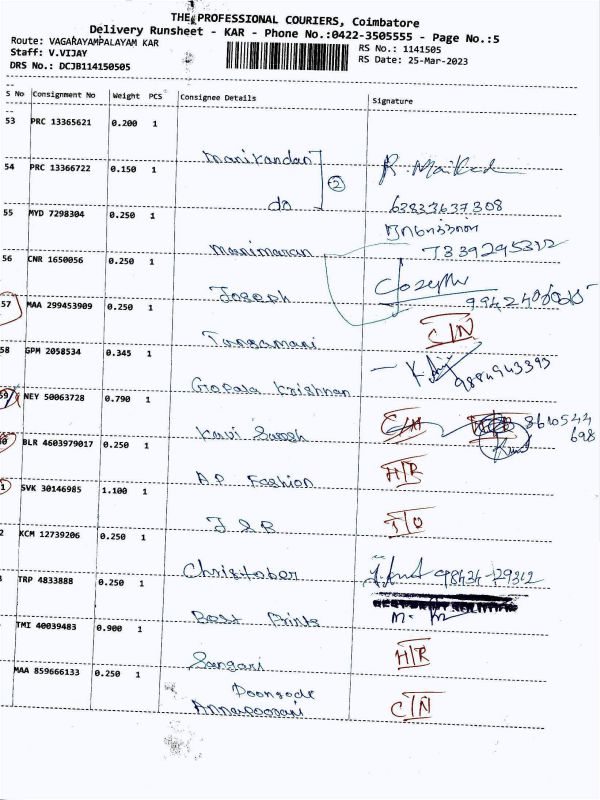 THE PROFESSIONAL COURIERS, Coimbatore
Delivery Runsheet - KAR - Phone No.:0422-3505555 - Page No.:5
Route: VAGARAYAMPALAYAM KAR
Staff: V.VIJAY
DRS No.: DCJB114150505
RS No.: 1141505
RS Date: 25-Mar-2023
S No Consignment No Weight PCS Consignee Details Signature
53 PRC 13365621 0.200 1 Manikandan
54 PRC 13366722 0.150 1 do 2 63833637308
55 MYD 7298304 0.250 1 Manimaran 7339295312
56 CNR 1650056 0.250 1 Joseph Joseph
57 MAA 299453909 0.250 1 Tangamani C/N
58 GPM 2058534 0.345 1 Gopala Krishnan 9884943393
59 NEY 50063728 0.790 1 Kavi 8610544
698
BLR 4603979017 0.250 1 A.P Fashion H/R
SVK 30146985 1.100 1 J & B T/O
KCM 12739206 0.250 1 Christober 98434-29312
TRP 4833888 0.250 1 Best Prints
TMI 40039483 0.900 1 Sangari H/R
MAA 859666133 0.250 1 Poongode
Annapoorani C/N